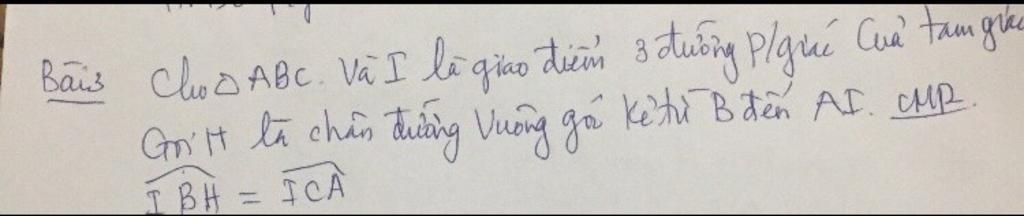 Bài 3 Cho △ ABC. Và I là giao điểm 3 đường p/giác của tam giác
Gọi H là chân đường vuông góc kẻ từ B đến AI. CMR.
IBH = ICA